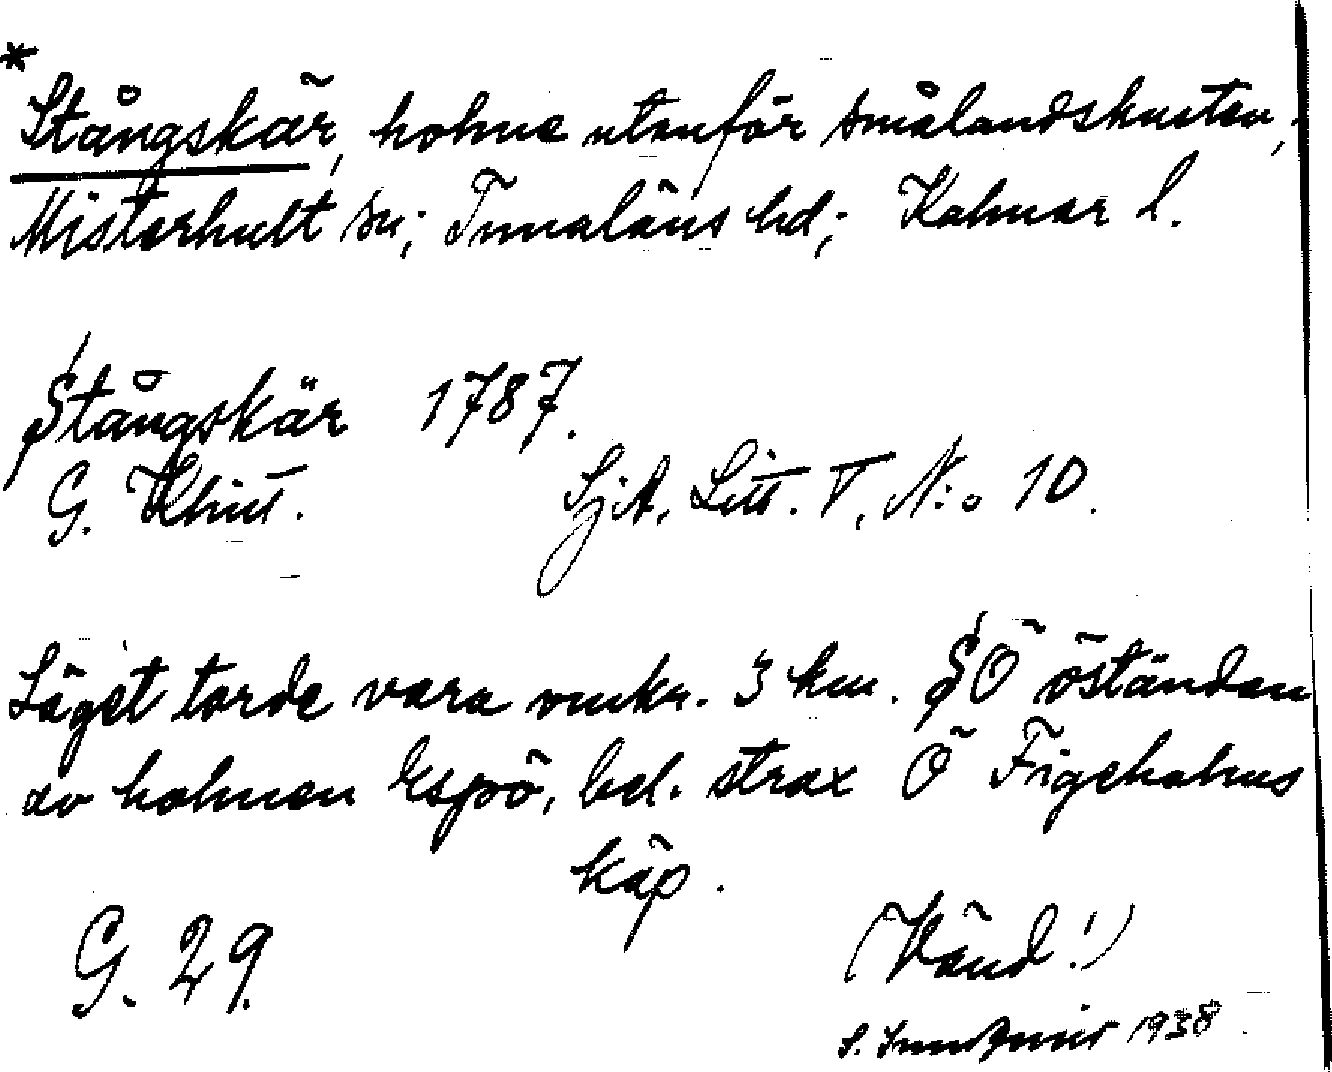 *
Stångskär, holme utanför Smålandskusten,
Misterhult sn; Tunaläns hd; Kalmar l.
Stångskär 1787.
G. Klint. SjA. Litt. V, N:o 10.
Läget torde vara omkr. 3 km. SÖ östanden
av holmen Espö, bel. strax Ö Figeholms
köp.
G. 29. (Vänd!)
S. 1938